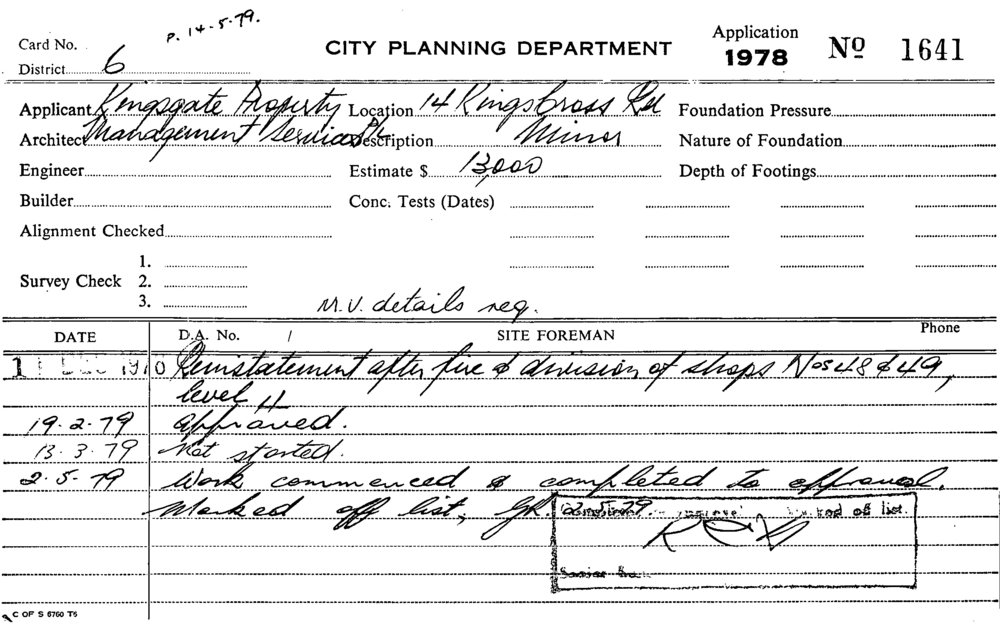 P. 14-5-79.
Card No.
CITY PLANNING DEPARTMENT
Application
1978
Nº 1641
District 6
Applicant Kingsgate Property
Location 14 Kings Cross Rd
Foundation Pressure
Architect Management Services P/L
Description Minor
Nature of Foundation
Engineer
Estimate $ 13,000
Depth of Footings
Builder
Conc. Tests (Dates)
Alignment Checked
Survey Check 1.
2.
3.
M.V. details req.
DATE
D.A. No. /
SITE FOREMAN
Phone
Reinstatement after fire & division of shops Nos 48 & 49,
level
19-2-79 Approved.
13-3-79 Not started.
2-5-79 Work commenced & completed to approval.
Marked off list,
off list.
C OF S 6760 T5